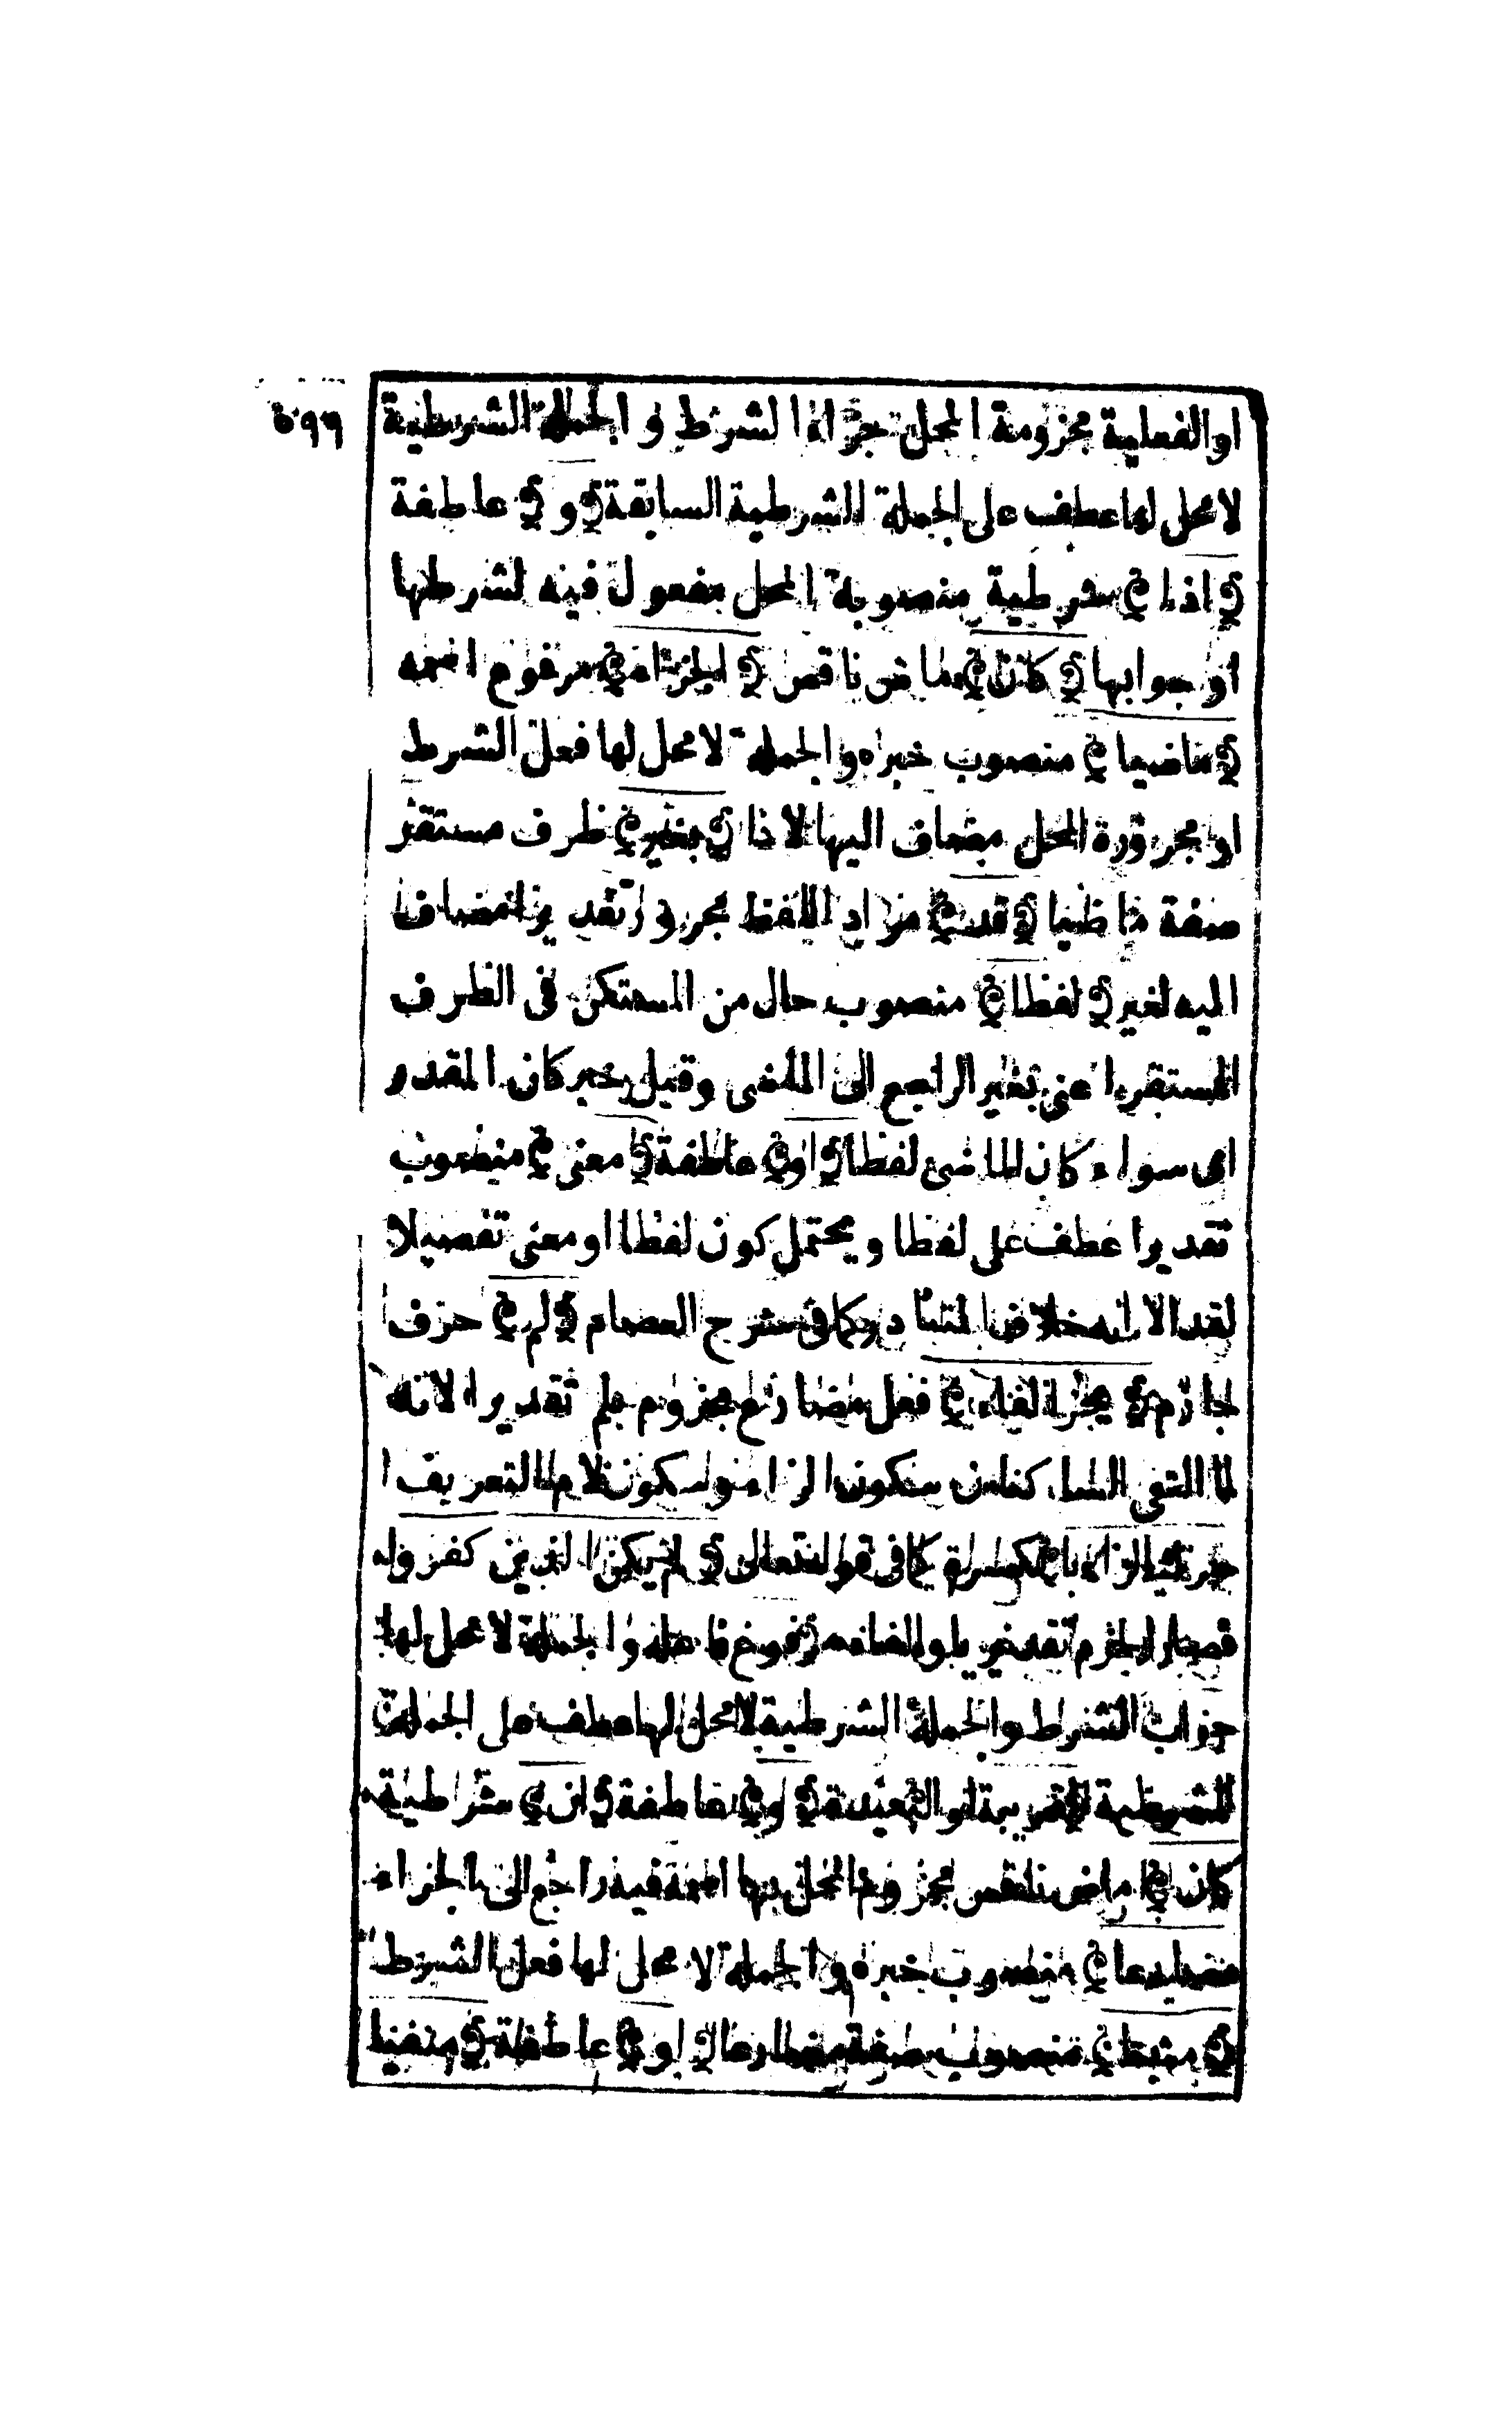 ٥٩٩
او الفعلية مجزومة المحل جزاء الشرط والجملة الشرطية
لا محل لها عطف على الجملة الشرطية السابقة ﴿و﴾ عاطفة
﴿اذا﴾ شرطية منصوبة المحل مفعول فيه لشرطها
او جوابها ﴿كان﴾ ماض ناقص ﴿الجزاء﴾ مرفوع اسمه
﴿ماضيا﴾ منصوب خبره والجملة لا محل لها فعل الشرط
او مجرورة المحل مضاف اليها لاذا ﴿بغير﴾ ظرف مستقر
صفة ماضيا ﴿قد﴾ مراد اللفظ مجرور تقديرا مضاف
اليه لغير ﴿لفظا﴾ منصوب حال من المستكن فى الظرف
المستقر اعنى بغير الراجع الى الماضى وقيل خبر كان المقدر
اى سواء كان الماضى لفظا ﴿او﴾ عاطفة ﴿معنى﴾ منصوب
تقديرا عطف على لفظا ويحتمل كون لفظا او معنى تفصيلا
لقد الا انه خلاف المتبادر كما فى شرح العصام ﴿لم﴾ حرف
جازم ﴿يجز الفاء﴾ فعل مضارع مجزوم بلم تقديرا لانه
لما التقى الساكنان سكون الزاء وسكون لام التعريف
حركت الزاء بالكسرة كما فى قوله تعالى ﴿لم يكن الذين كفروا﴾
فصار الجزم تقديريا والفاء مرفوع فاعله والجملة لا محل لها
جواب الشرط والجملة الشرطية لا محل لها عطف على الجملة
الشرطية القريبة او البعيدة ﴿و﴾ عاطفة ﴿ان﴾ شرطية
كان ﴾ ماض ناقص مجزوم المحل بها اسمه فيه راجع الى الجزاء
مضارعا ﴾ منصوب خبره والجملة لا محل لها فعل الشرط
﴿مثبتا﴾ منصوب صفة مضارعا ﴿او﴾ عاطفة ﴿منفيا